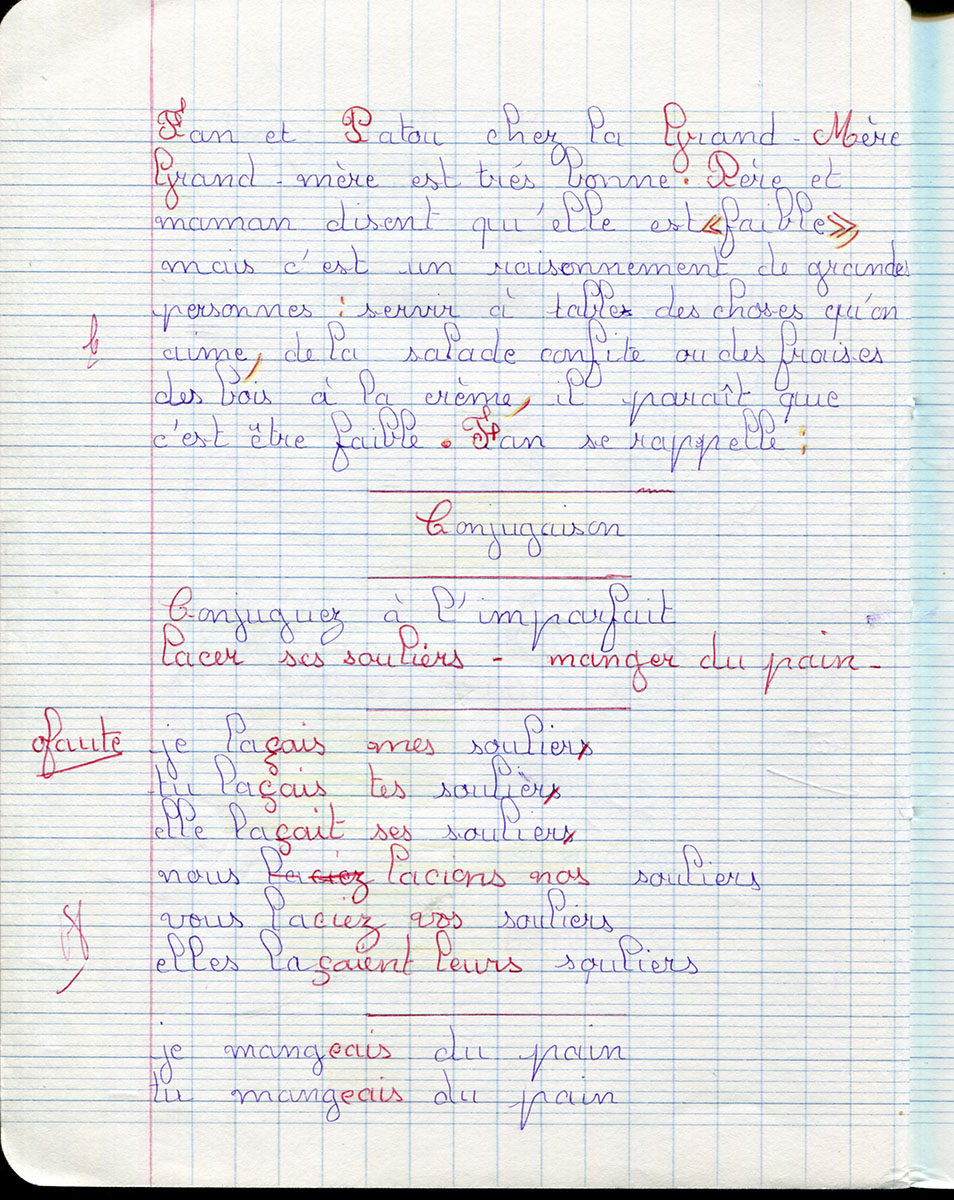 Fan et Patou chez la Grand-Mère
Grand-mère est trés bonne. Père et
maman disent qu'elle est «faible»,
mais c'est un raisonnement de grandes
personnes : servir à table des choses qu'on
aime, de la salade confite ou des fraises
des bois à la crème, il paraît que
c'est être faible. Fan se rappelle :
Conjugaison
Conjuguez à l'imparfait
lacer ses souliers - manger du pain -
0faute je laçais mes souliers
tu laçais tes souliers
elle laçait ses souliers
nous laciez lacions nos souliers
vous laciez vos souliers
elles laçaient leurs souliers
je mangeais du pain
tu mangeais du pain